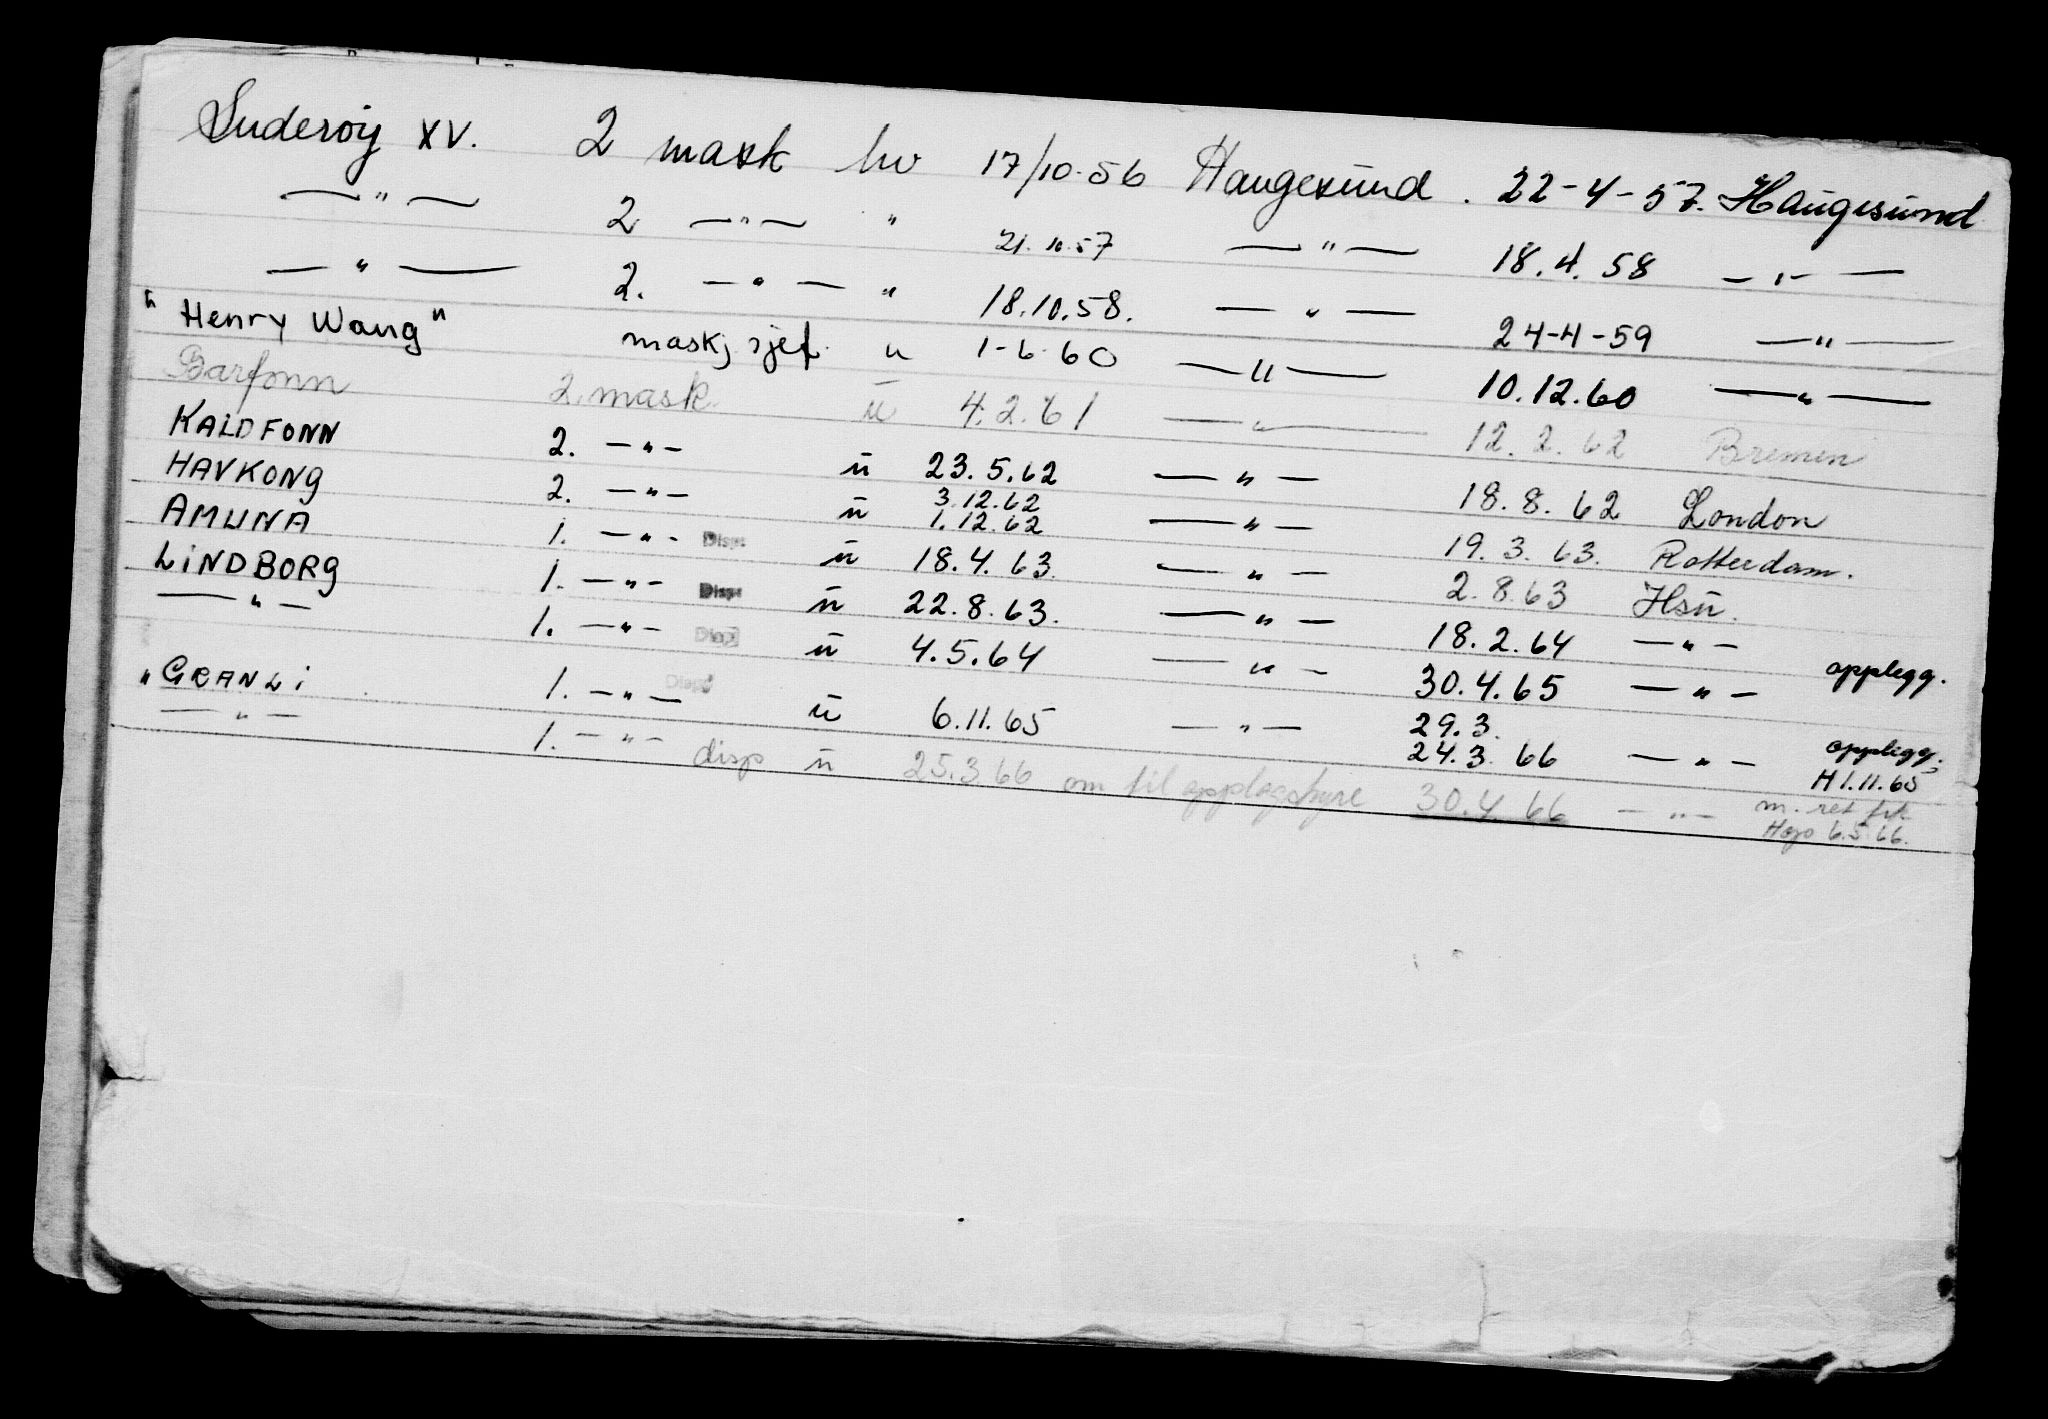 Suderøy XV. 2 mask hv 17/10-56 Haugesund. 22-4-57. Haugesund
— " — 2 — " — " 21.10.57 — " — 18.4.58 — " —
— " — 2. — " — " 18.10.58. — " — 24-4-59 — " —
"Henry Wang" maskj sjef. u 1-6-60 — " — 10.12.60 — " —
Barfonn 2. mask. u 4.2.61 — " — 12.2.62 Bremen
KALDFONN 2. — " — u 23.5.62 — " — 18.8.62 London
HAVKONG 2. — " — u 3.12.62 1.12.62 — " — 19.3.63. Rotterdam.
AMUNA 1. — " — Disp: u 18.4.63. — " — 2.8.63 Hsu.
LINDBORG 1. — " — Disp: u 22.8.63. — " — 18.2.64 — " —
— " — 1. — " — Disp u 4.5.64 — " — 30.4.65 — " — opplegg.
"GRANLI 1. — " — Disp u 6.11.65 — " — 29.3. 24.3.66 — " — opplegg. H 1.11.65
— " — 1. — " — disp u 25.3.66 om til opplagshyre 30.4.66 — " — m. ret frt. Hgo 6.5.66.